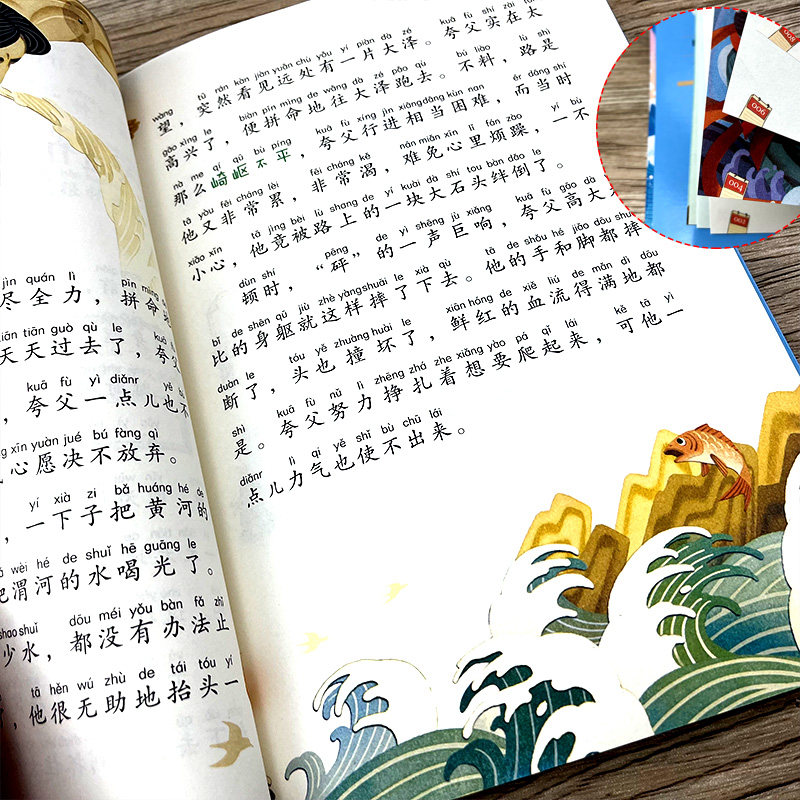 jìn quán lì pīn mìng
尽全力，拼命
tiān guò qù le kuā
天天过去了，夸
kuā fù yì diǎnr yě
，夸父一点儿也不
xīn yuàn jué bú fàng qì
心愿决不放弃。
yí xià zi bǎ huáng hé de
，一下子把黄河的
wèi hé de shuǐ hē guāng le
把渭河的水喝光了。
shao shuǐ dōu méi yǒu bàn fǎ zhǐ
少水，都没有办法止
tā hěn wú zhù de tái tóu yí
，他很无助地抬头一
wàng tū rán kàn jiàn yuǎn chù yǒu yí piàn dà zé kuā fù shí zài tài
望，突然看见远处有一片大泽。夸父实在太
gāo xìng le biàn pīn mìng de wǎng dà zé pǎo qù bú liào lù shì
高兴了，便拼命地往大泽跑去。不料，路是
nà me qí qū bù píng kuā fù xíng jìn xiāng dāng kùn nan ér dāng shí
那么崎岖不平，夸父行进相当困难，而当时
tā yòu fēi cháng lèi fēi cháng kě nán miǎn xīn lǐ fán zào yí bù
他又非常累，非常渴，难免心里烦躁，一不
xiǎo xīn tā jìng bèi lù shang de yí kuài dà shí tou bàn dǎo le
小心，他竟被路上的一块大石头绊倒了。
dùn shí pēng de yì shēng jù xiǎng kuā fù gāo dà
顿时，“砰”的一声巨响，夸父高大无
bǐ de shēn qū jiù zhè yàng shuāi le xià qù tā de shǒu hé jiǎo dōu shuāi
比的身躯就这样摔了下去。他的手和脚都摔
duàn le tóu yě zhuàng huài le xiān hóng de xiě liú de mǎn dì dōu
断了，头也撞坏了，鲜红的血流得满地都
shì kuā fù nǔ lì zhēng zhá zhe xiǎng yào pá qǐ lái kě tā yì
是。夸父努力挣扎着想要爬起来，可他一
diǎnr lì qi yě shǐ bù chū lái
点儿力气也使不出来。
008
006
004
002